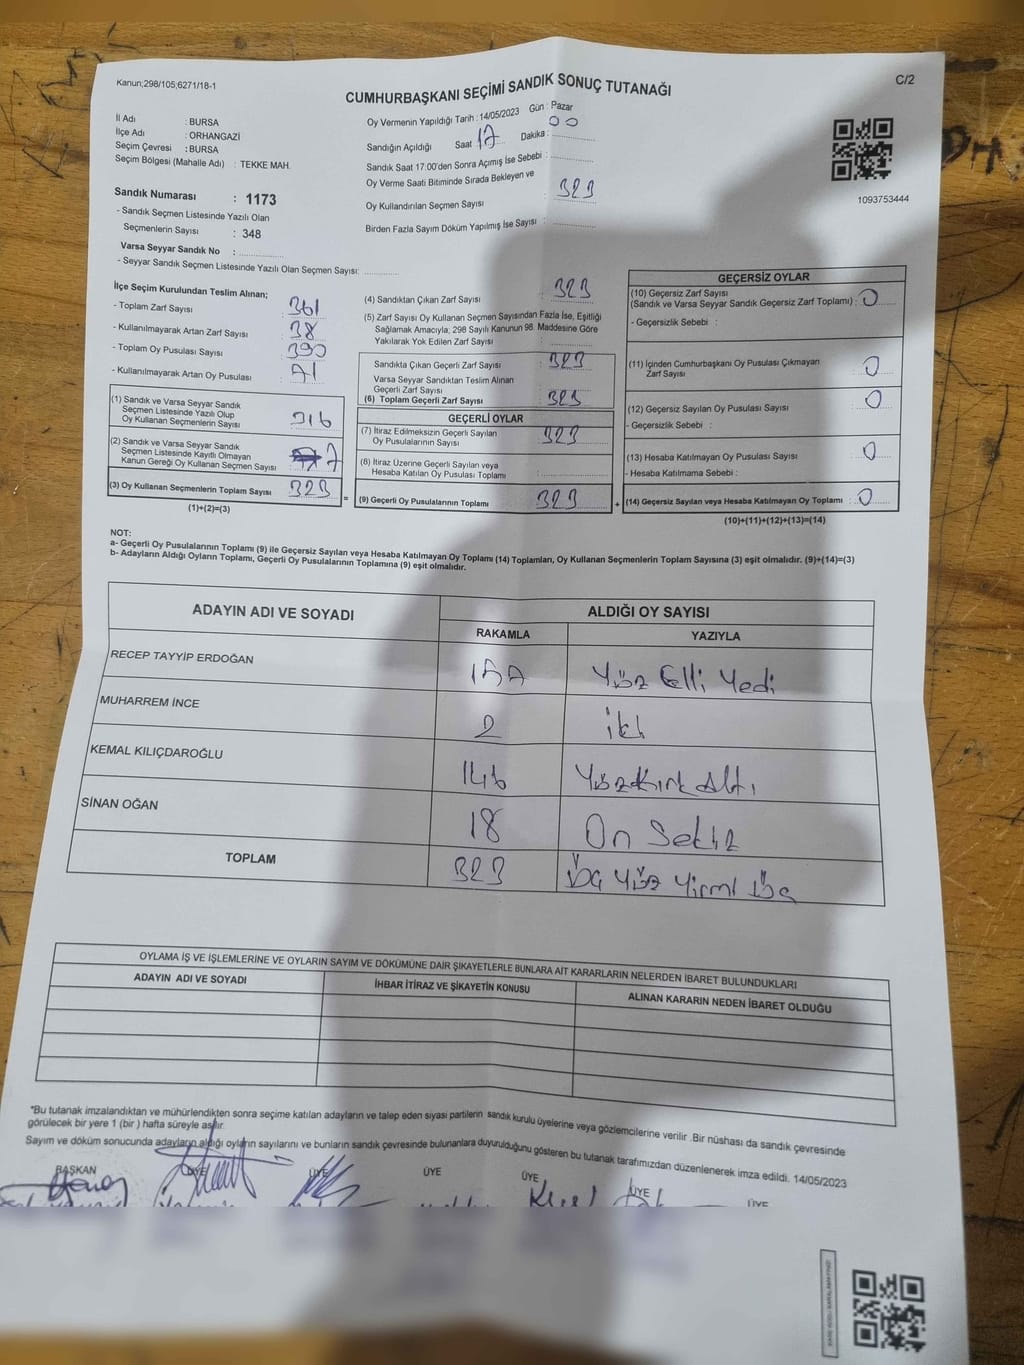 Kanun;298/105;6271/18-1
C/2
CUMHURBAŞKANI SEÇİMİ SANDIK SONUÇ TUTANAĞI
İl Adı : BURSA
İlçe Adı : ORHANGAZİ
Seçim Çevresi : BURSA
Seçim Bölgesi (Mahalle Adı) : TEKKE MAH.
Sandık Numarası : 1173
- Sandık Seçmen Listesinde Yazılı Olan
Seçmenlerin Sayısı : 348
Varsa Seyyar Sandık No :
- Seyyar Sandık Seçmen Listesinde Yazılı Olan Seçmen Sayısı:
Oy Vermenin Yapıldığı Tarih : 14/05/2023 Gün : Pazar
Sandığın Açıldığı Saat 17 Dakika : 00
Sandık Saat 17:00'den Sonra Açımış İse Sebebi :
Oy Verme Saati Bitiminde Sırada Bekleyen ve
Oy Kullandırılan Seçmen Sayısı : 323
Birden Fazla Sayım Döküm Yapılmış İse Sayısı :
1093753444
İlçe Seçim Kurulundan Teslim Alınan;
- Toplam Zarf Sayısı : 361
- Kullanılmayarak Artan Zarf Sayısı : 38
- Toplam Oy Pusulası Sayısı : 390
- Kullanılmayarak Artan Oy Pusulası :
(1) Sandık ve Varsa Seyyar Sandık
Seçmen Listesinde Yazılı Olup
Oy Kullanan Seçmenlerin Sayısı : 316
(2) Sandık ve Varsa Seyyar Sandık
Seçmen Listesinde Kayıtlı Olmayan
Kanun Gereği Oy Kullanan Seçmen Sayısı : 7
(3) Oy Kullanan Seçmenlerin Toplam Sayısı : 323
(1)+(2)=(3)
=
(4) Sandıktan Çıkan Zarf Sayısı : 323
(5) Zarf Sayısı Oy Kullanan Seçmen Sayısından Fazla İse, Eşitliği
Sağlamak Amacıyla; 298 Sayılı Kanunun 98. Maddesine Göre
Yakılarak Yok Edilen Zarf Sayısı :
Sandıkta Çıkan Geçerli Zarf Sayısı : 323
Varsa Seyyar Sandıktan Teslim Alınan
Geçerli Zarf Sayısı :
(6) Toplam Geçerli Zarf Sayısı : 323
GEÇERLİ OYLAR
(7) İtiraz Edilmeksizin Geçerli Sayılan
Oy Pusulalarının Sayısı : 323
(8) İtiraz Üzerine Geçerli Sayılan veya
Hesaba Katılan Oy Pusulası Toplamı :
(9) Geçerli Oy Pusulalarının Toplamı : 323
+
GEÇERSİZ OYLAR
(10) Geçersiz Zarf Sayısı
(Sandık ve Varsa Seyyar Sandık Geçersiz Zarf Toplamı) : 0
- Geçersizlik Sebebi :
(11) İçinden Cumhurbaşkanı Oy Pusulası Çıkmayan
Zarf Sayısı : 0
(12) Geçersiz Sayılan Oy Pusulası Sayısı : 0
- Geçersizlik Sebebi :
(13) Hesaba Katılmayan Oy Pusulası Sayısı : 0
- Hesaba Katılmama Sebebi :
(14) Geçersiz Sayılan veya Hesaba Katılmayan Oy Toplamı : 0
(10)+(11)+(12)+(13)=(14)
NOT:
a- Geçerli Oy Pusulalarının Toplamı (9) ile Geçersiz Sayılan veya Hesaba Katılmayan Oy Toplamı (14) Toplamları, Oy Kullanan Seçmenlerin Toplam Sayısına (3) eşit olmalıdır. (9)+(14)=(3)
b- Adayların Aldığı Oyların Toplamı, Geçerli Oy Pusulalarının Toplamına (9) eşit olmalıdır.
ADAYIN ADI VE SOYADI
ALDIĞI OY SAYISI
RAKAMLA YAZIYLA
RECEP TAYYİP ERDOĞAN 157 Yüz Elli Yedi
MUHARREM İNCE 2 iki
KEMAL KILIÇDAROĞLU 146 Yüz Kırk Altı
SİNAN OĞAN 18 On Sekiz
TOPLAM 323 Üç Yüz Yirmi Üç
OYLAMA İŞ VE İŞLEMLERİNE VE OYLARIN SAYIM VE DÖKÜMÜNE DAİR ŞİKAYETLERLE BUNLARA AİT KARARLARIN NELERDEN İBARET BULUNDUKLARI
ADAYIN ADI VE SOYADI
İHBAR İTİRAZ VE ŞİKAYETİN KONUSU
ALINAN KARARIN NEDEN İBARET OLDUĞU
*Bu tutanak imzalandıktan ve mühürlendikten sonra seçime katılan adayların ve talep eden siyasi partilerin sandık kurulu üyelerine veya gözlemcilerine verilir .Bir nüshası da sandık çevresinde
görülecek bir yere 1 (bir ) hafta süreyle asılır.
Sayım ve döküm sonucunda adayların aldığı oyların sayılarını ve bunların sandık çevresinde bulunanlara duyurulduğunu gösteren bu tutanak tarafımızdan düzenlenerek imza edildi. 14/05/2023
BAŞKAN ÜYE ÜYE ÜYE ÜYE ÜYE ÜYE